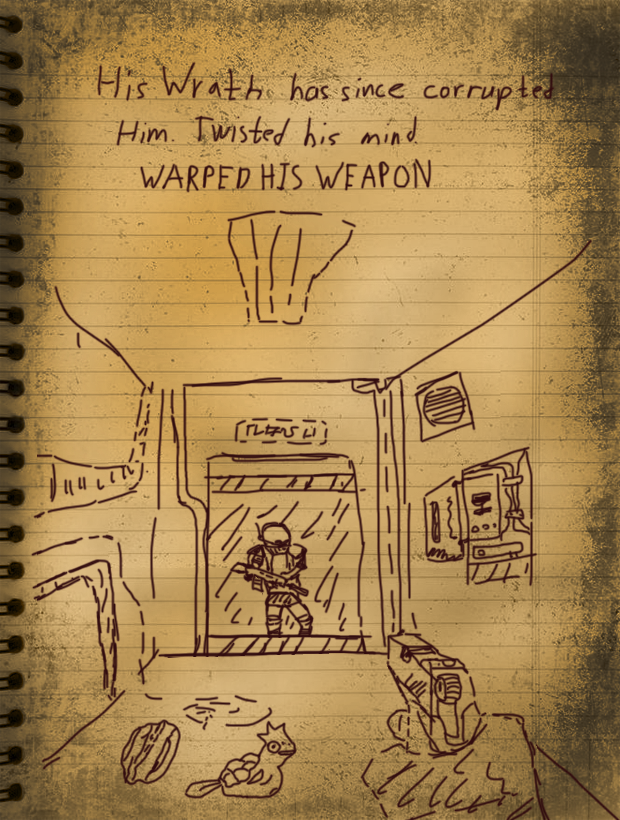 His Wrath has since corrupted
Him. Twisted his mind
WARPED HIS WEAPON